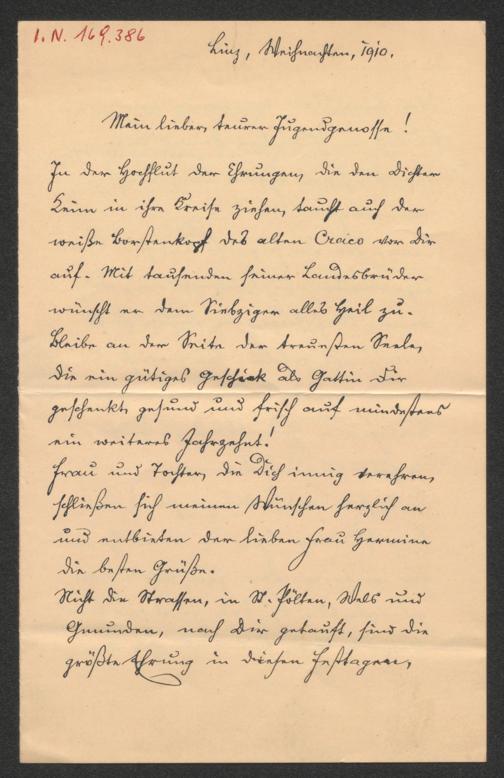 I.N. 169.386
Linz, Weihnachten, 1910.
Mein lieber, teurer Jugendgenosse!
In der Hochflut der Ehrungen, die den Dichter
Keim in ihre Kreise ziehen, taucht auch der
weiße Borstenkopf des alten Croico vor Dir
auf. Mit tausenden seiner Landesbrüder
wünscht er dem Siebziger alles Heil zu.
Bleibe an der Seite der treuesten Seele,
die ein gütiges Geschick als Gattin Dir
geschenkt, gesund und frisch auf mindestens
ein weiteres Jahrzehnt!
Frau und Tochter, die Dich innig verehren,
schließen sich meinen Wünschen herzlich an
und entbieten der lieben Frau Hermine
die besten Grüße.
Nicht die Strassen, in St. Pölten, Wels und
Gmunden, nach Dir getauft, sind die
größte Ehrung in diesen Festtagen,